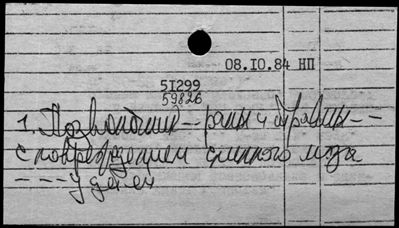 08.10.84 НП
51299
59826
1. Позвоночник -- раны и травмы --
с повреждением спинного мозга
---- у детей